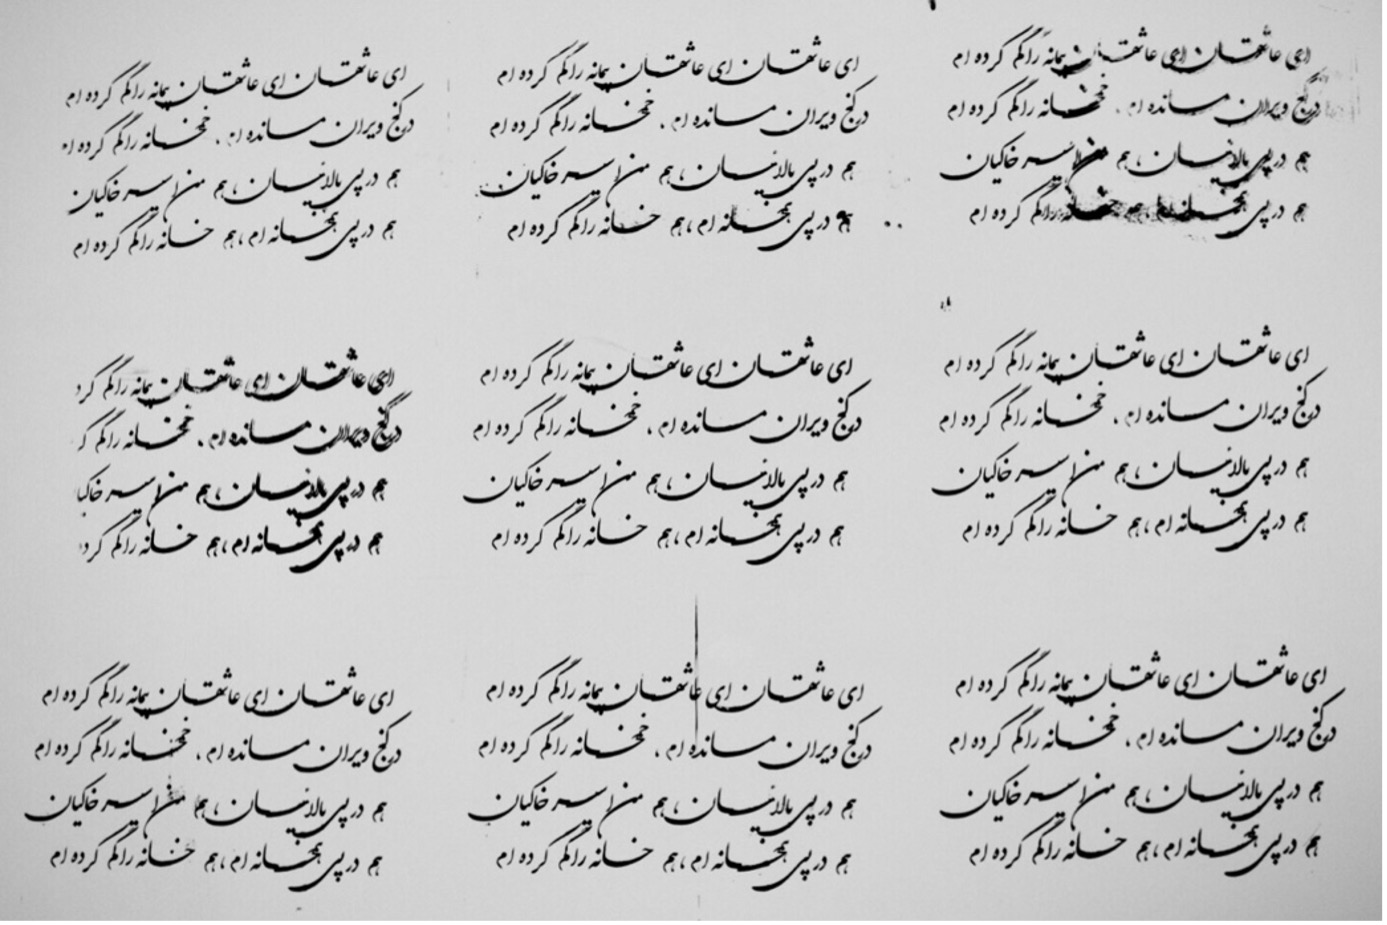 ای عاشقان ای عاشقان پیمانه را گم کرده ام
در کنج ویران مانده ام ، خمخانه را گم کرده ام
هم در پی بالائیان ، هم من اسیر خاکیان
هم در پی همخانه ام ، هم خانه را گم کرده ام
ای عاشقان ای عاشقان پیمانه را گم کرده ام
در کنج ویران مانده ام ، خمخانه را گم کرده ام
هم در پی بالائیان ، هم من اسیر خاکیان
هم در پی همخانه ام ، هم خانه را گم کرده ام
ای عاشقان ای عاشقان پیمانه را گم کرده ام
در کنج ویران مانده ام ، خمخانه را گم کرده ام
هم در پی بالائیان ، هم من اسیر خاکیان
هم در پی همخانه ام ، هم خانه را گم کرده ام
ای عاشقان ای عاشقان پیمانه را گم کرده ام
در کنج ویران مانده ام ، خمخانه را گم کرده ام
هم در پی بالائیان ، هم من اسیر خاکیان
هم در پی همخانه ام ، هم خانه را گم کرده ام
ای عاشقان ای عاشقان پیمانه را گم کرده ام
در کنج ویران مانده ام ، خمخانه را گم کرده ام
هم در پی بالائیان ، هم من اسیر خاکیان
هم در پی همخانه ام ، هم خانه را گم کرده ام
ای عاشقان ای عاشقان پیمانه را گم کرد
در کنج ویران مانده ام ، خمخانه را گم ک
هم در پی بالائیان ، هم من اسیر خاکیا
هم در پی همخانه ام ، هم خانه را گم کرد
ای عاشقان ای عاشقان پیمانه را گم کرده ام
در کنج ویران مانده ام ، خمخانه را گم کرده ام
هم در پی بالائیان ، هم من اسیر خاکیان
هم در پی همخانه ام ، هم خانه را گم کرده ام
ای عاشقان ای عاشقان پیمانه را گم کرده ام
در کنج ویران مانده ام ، خمخانه را گم کرده ام
هم در پی بالائیان ، هم من اسیر خاکیان
هم در پی همخانه ام ، هم خانه را گم کرده ام
ای عاشقان ای عاشقان پیمانه را گم کرده ام
در کنج ویران مانده ام ، خمخانه را گم کرده ام
هم در پی بالائیان ، هم من اسیر خاکیان
هم در پی همخانه ام ، هم خانه را گم کرده ام